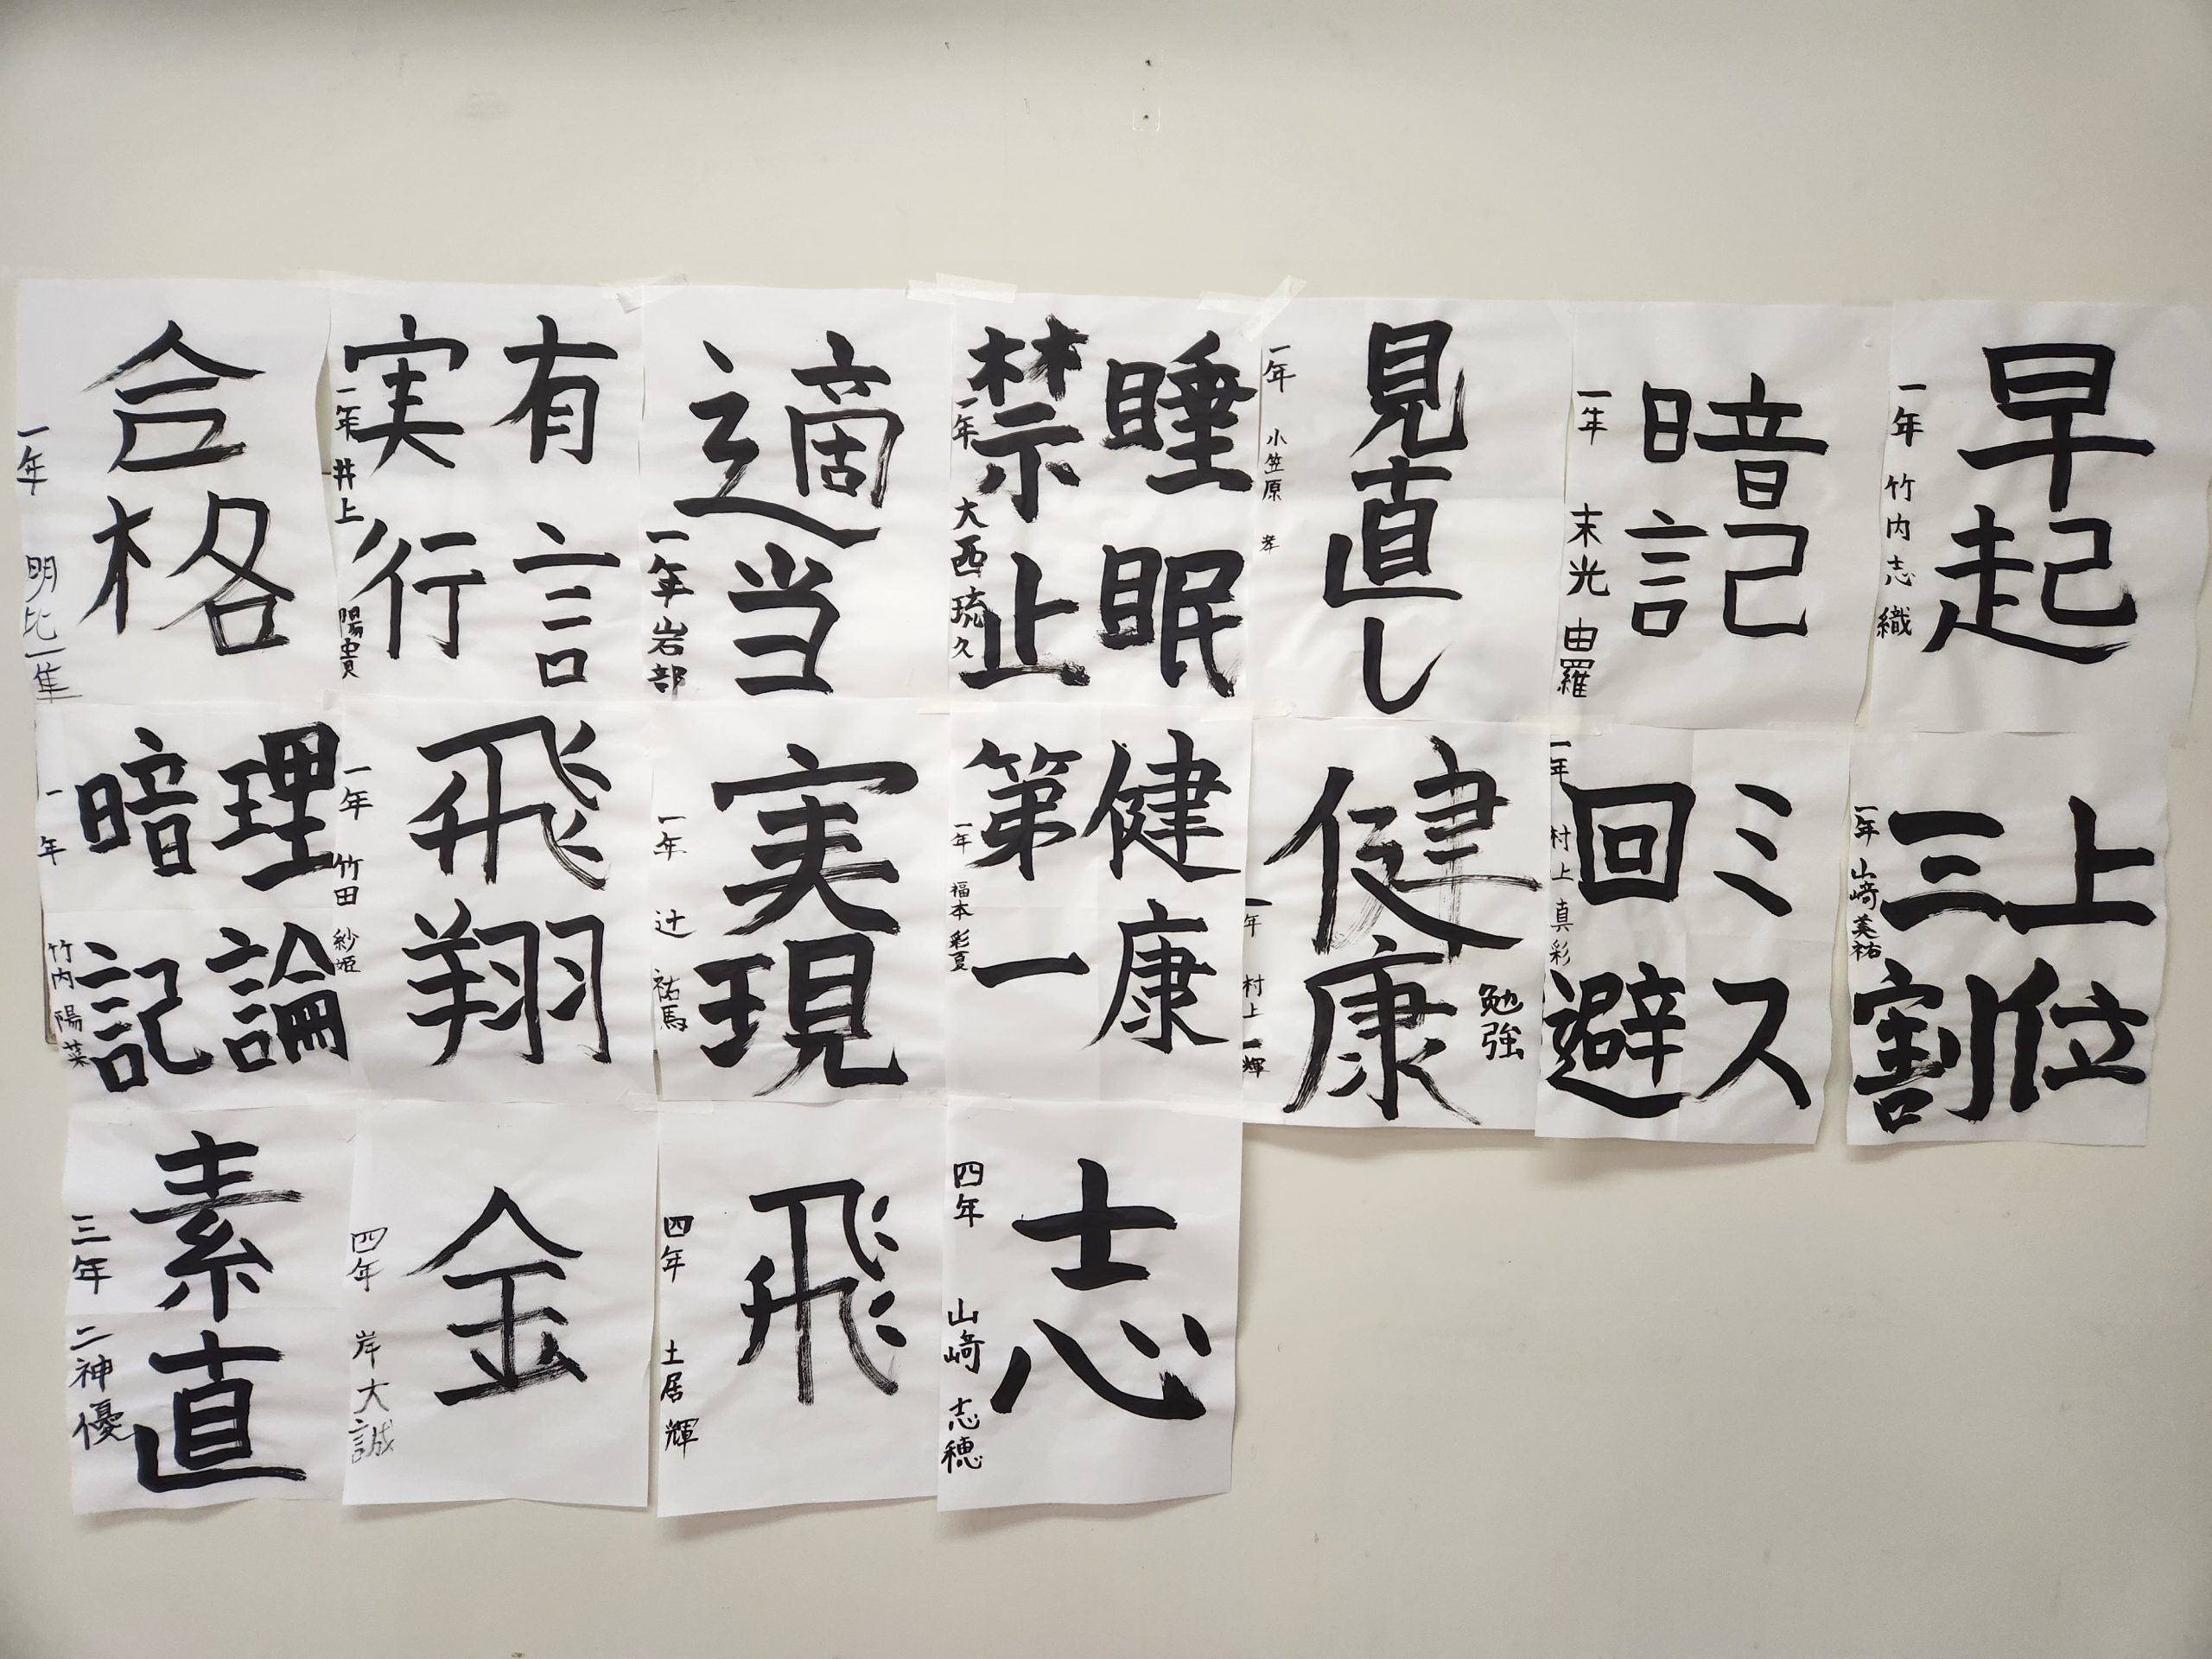 早起
一年 竹内志織
暗記
一年 末光由羅
見直し
一年 小笠原 孝
睡眠
禁止
一年 大西琉久
適当
一年 岩部
有言
実行
一年 井上陽貴
合格
一年 明比一隼
上位
三割
一年 山﨑美祐
ミス
回避
一年 村上真彩
勉強
健康
一年 村上一輝
健康
第一
一年 福本彩夏
実現
一年 辻祐馬
飛翔
一年 竹田紗姫
理論
暗記
一年 竹内陽菜
志
四年 山﨑志穂
飛
四年 土居輝
金
四年 岸大誠
素直
三年 二神優